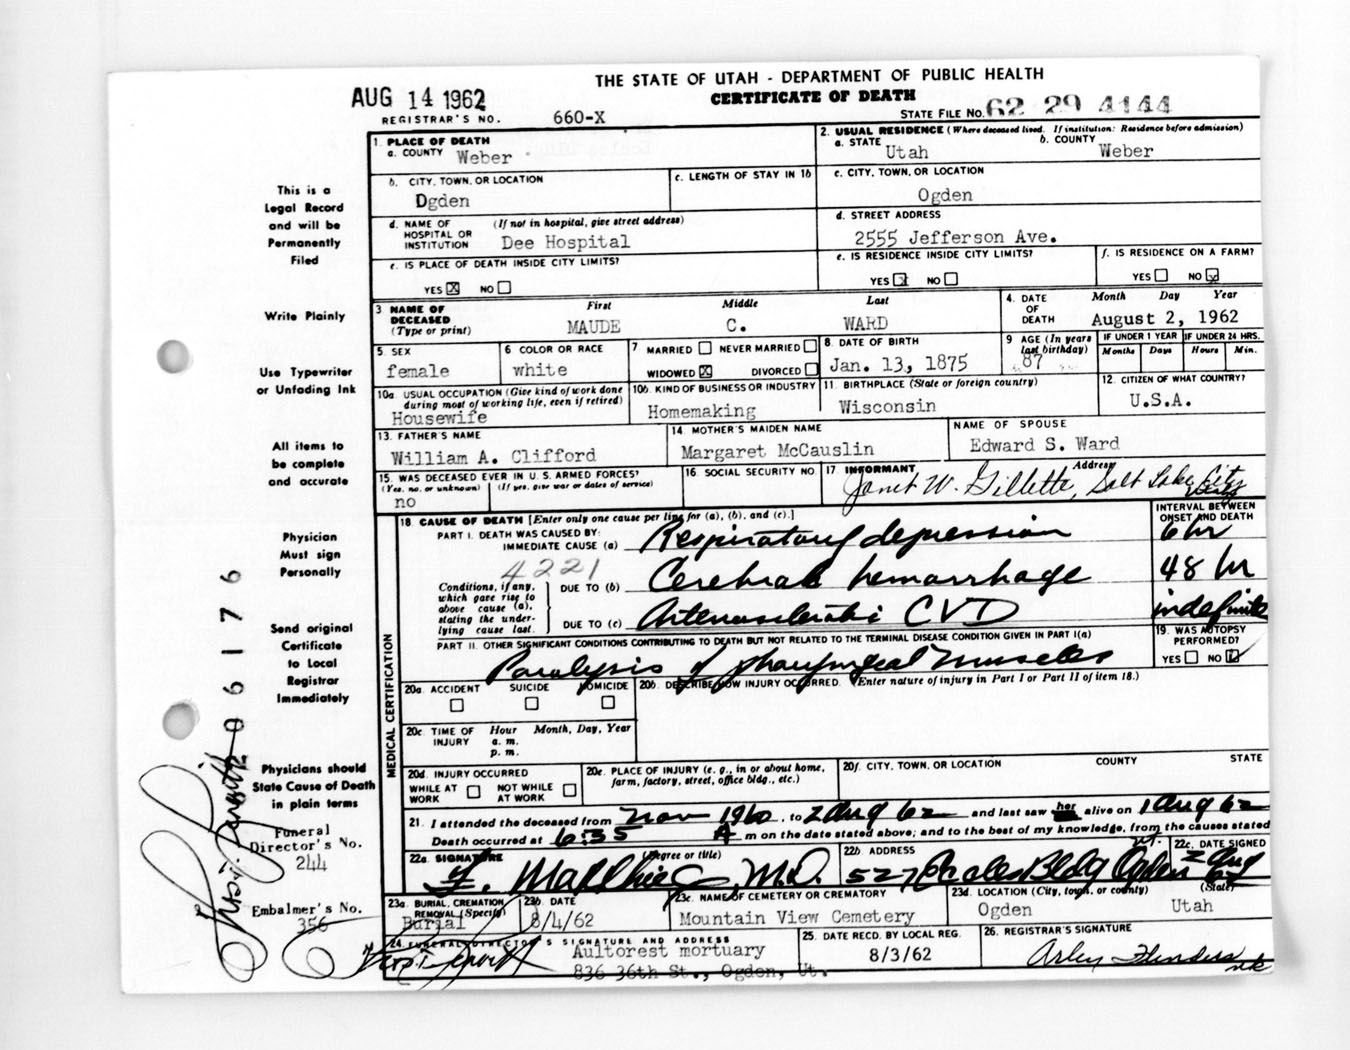 THE STATE OF UTAH - DEPARTMENT OF PUBLIC HEALTH
AUG 14 1962
CERTIFICATE OF DEATH
REGISTRAR'S NO. 660-X
STATE FILE NO. 62 29 4144
1. PLACE OF DEATH
a. COUNTY Weber
2. USUAL RESIDENCE (Where deceased lived. If institution: Residence before admission)
a. STATE Utah b. COUNTY Weber
b. CITY, TOWN, OR LOCATION
Ogden
c. LENGTH OF STAY IN 1b
c. CITY, TOWN, OR LOCATION
Ogden
d. NAME OF HOSPITAL OR INSTITUTION (If not in hospital, give street address)
Dee Hospital
d. STREET ADDRESS
2555 Jefferson Ave.
e. IS PLACE OF DEATH INSIDE CITY LIMITS?
YES X NO
e. IS RESIDENCE INSIDE CITY LIMITS?
YES X NO
f. IS RESIDENCE ON A FARM?
YES NO X
3 NAME OF DECEASED (Type or print)
First Middle Last
MAUDE C. WARD
4. DATE OF DEATH
Month Day Year
August 2, 1962
5. SEX
female
6 COLOR OR RACE
white
7 MARRIED NEVER MARRIED
WIDOWED X DIVORCED
8. DATE OF BIRTH
Jan. 13, 1875
9 AGE (In years last birthday)
87
IF UNDER 1 YEAR IF UNDER 24 HRS.
Months Days Hours Min.
10a. USUAL OCCUPATION (Give kind of work done during most of working life, even if retired)
Housewife
10b. KIND OF BUSINESS OR INDUSTRY
Homemaking
11. BIRTHPLACE (State or foreign country)
Wisconsin
12. CITIZEN OF WHAT COUNTRY?
U.S.A.
13. FATHER'S NAME
William A. Clifford
14. MOTHER'S MAIDEN NAME
Margaret McCauslin
NAME OF SPOUSE
Edward S. Ward
15. WAS DECEASED EVER IN U. S. ARMED FORCES?
(Yes, no, or unknown) (If yes, give war or dates of service)
no
16. SOCIAL SECURITY NO
17. INFORMANT Address
Janet W. Gillette, Salt Lake City
18. CAUSE OF DEATH [Enter only one cause per line for (a), (b), and (c).]
INTERVAL BETWEEN ONSET AND DEATH
PART I. DEATH WAS CAUSED BY:
IMMEDIATE CAUSE (a) Respiratory depression 6 hr
4221
Conditions, if any, which gave rise to above cause (a), stating the underlying cause last.
DUE TO (b) Cerebral hemorrhage 48 hr
DUE TO (c) Arteriosclerotic CVD indefinite
PART II. OTHER SIGNIFICANT CONDITIONS CONTRIBUTING TO DEATH BUT NOT RELATED TO THE TERMINAL DISEASE CONDITION GIVEN IN PART I(a)
Paralysis of pharyngeal muscles
19. WAS AUTOPSY PERFORMED?
YES NO
MEDICAL CERTIFICATION
20a. ACCIDENT SUICIDE HOMICIDE
20b. DESCRIBE HOW INJURY OCCURRED. (Enter nature of injury in Part I or Part II of item 18.)
20c. TIME OF INJURY Hour Month, Day, Year
a. m.
p. m.
20d. INJURY OCCURRED
WHILE AT WORK NOT WHILE AT WORK
20e. PLACE OF INJURY (e. g., in or about home, farm, factory, street, office bldg., etc.)
20f. CITY, TOWN, OR LOCATION COUNTY STATE
21. I attended the deceased from Nov 1960, to 2 Aug 62 and last saw her alive on 1 Aug 62
Death occurred at 6:35 A m on the date stated above; and to the best of my knowledge, from the causes stated
22a. SIGNATURE (Degree or title)
M.D.
22b. ADDRESS
527 Eccles Bldg Ogden Ut.
22c. DATE SIGNED
2 Aug 62
23a. BURIAL, CREMATION REMOVAL (Specify)
Burial
23b. DATE
8/4/62
23c. NAME OF CEMETERY OR CREMATORY
Mountain View Cemetery
23d. LOCATION (City, town, or county) (State)
Ogden Utah
24. FUNERAL DIRECTOR'S SIGNATURE AND ADDRESS
Aultorest mortuary
836 36th St., Ogden, Ut.
25. DATE RECD. BY LOCAL REG.
8/3/62
26. REGISTRAR'S SIGNATURE
This is a
Legal Record
and will be
Permanently
Filed
Write Plainly
Use Typewriter
or Unfading Ink
All items to
be complete
and accurate
Physician
Must sign
Personally
Send original
Certificate
to Local
Registrar
Immediately
Physicians should
State Cause of Death
in plain terms
Funeral
Director's No.
244
Embalmer's No.
356
06176